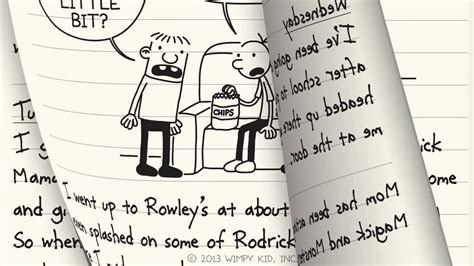 LITTLE
BIT?
CHIPS
Wednesday
I've been going
after school to
headed up there
me at the door.
Mom has been
Magick and
Tu
I
Mama
some
I went up to Rowley's at about
and
of
So when
even splashed on some of Rodrick
© 2013 WIMPY KID, INC.